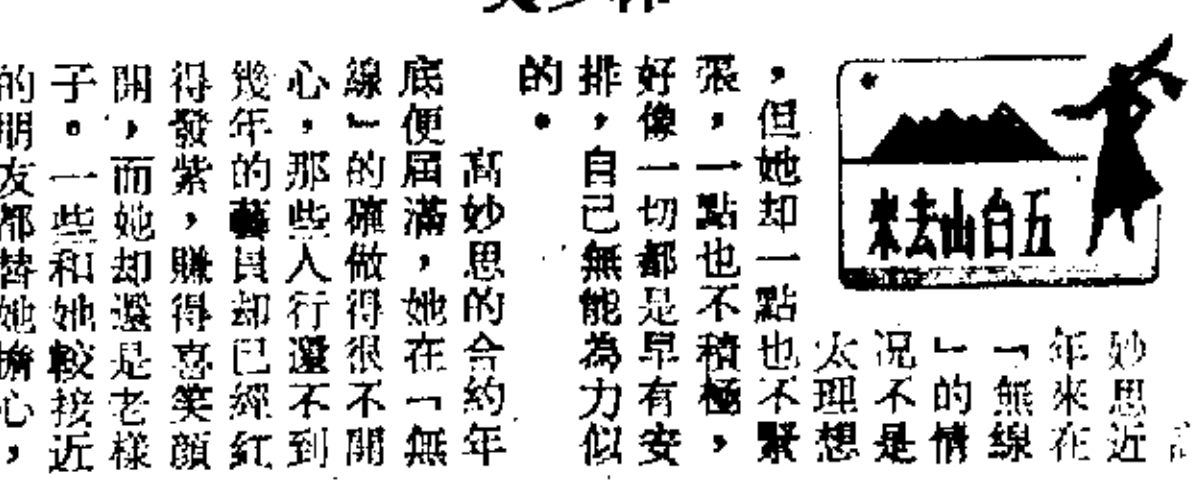 五台山去來
妙思近
年來在
「無線
」的情
况不是
太理想
，但她却一點也不緊
張，一點也不積極，
好像一切都是早有安
排，自己無能為力似
的。
高妙思的合約年
底便屆滿，她在「無
線」的確做得很不開
心，那些入行還不到
幾年的藝員却已經紅
得發紫，賺得喜笑顏
開，而她却還是老樣
子。一些和她較接近
的朋友都替她擔心，